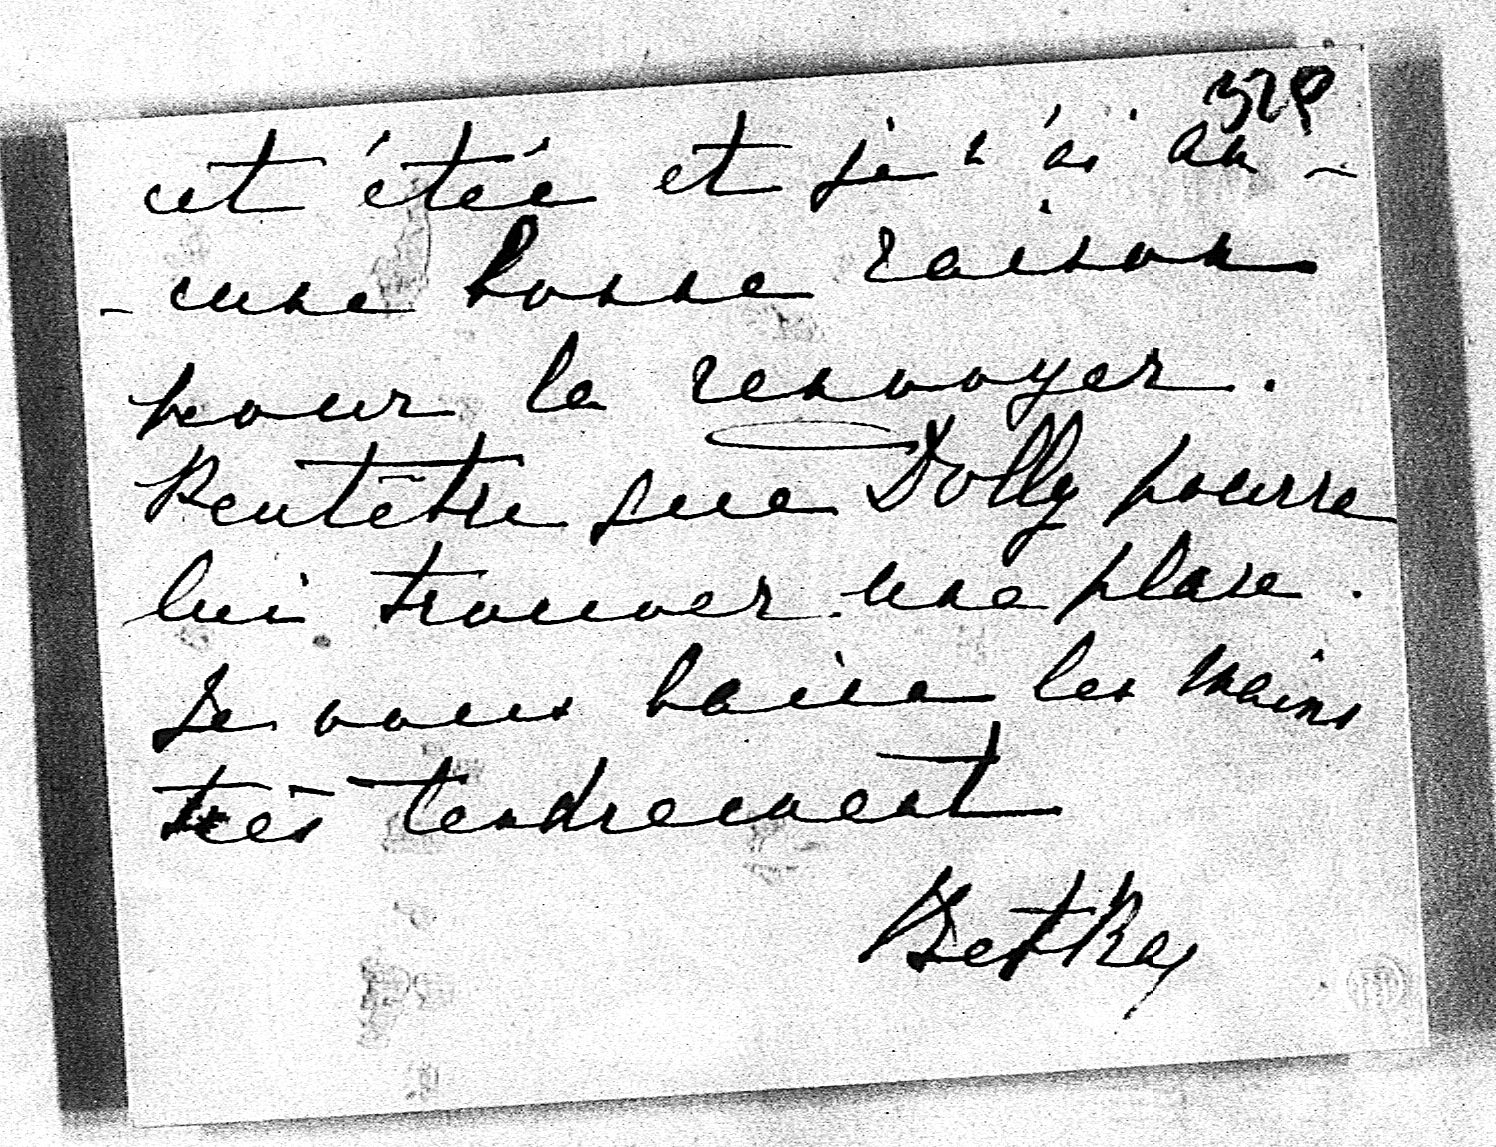 329
cet étée et je n'ai au-
-cune bonne raison
pour la renvoyer.
Peutêtre que Dolly pourra
lui trouver une place.
Je vous baise les mains
très tendrement